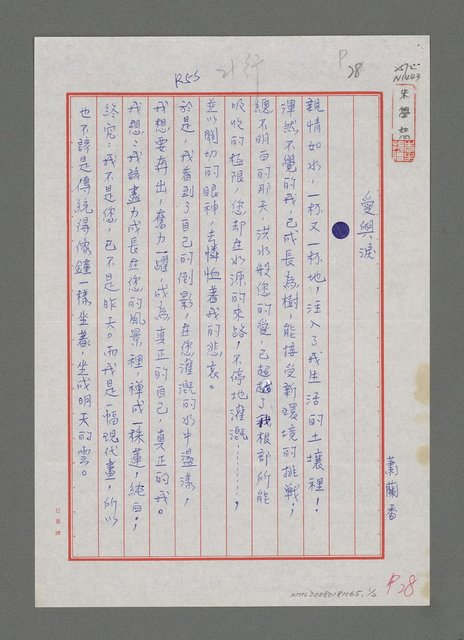 P28
R55
N1443
愛與淚
蕭蘭香
親情如水，一杯又一杯地，注入了我生活的土壤裡！
渾然不覺的我，已成長為樹，能接受新環境的挑戰，
總不明白的那天，洪水般您的愛，已超越了我根部所能
吸收的極限，您卻在水源的來路，不停地灌溉………，
並以關切的眼神，去憐恤著我的悲哀。
於是，我看到了自己的倒影，在您灌溉的水中盪漾，
我想要奔出，奮力一躍，成為真正的自己，真正的我。
我想：我該盡力成長在您的風景裡，禪成一株蓮，純白，
終究，我不是您，已不是昨天。而我是一幅現代畫，所以
也不該是傳統得像鐘一樣坐著，坐成明天的雲。
P28
NMTL20080181165, 1/2